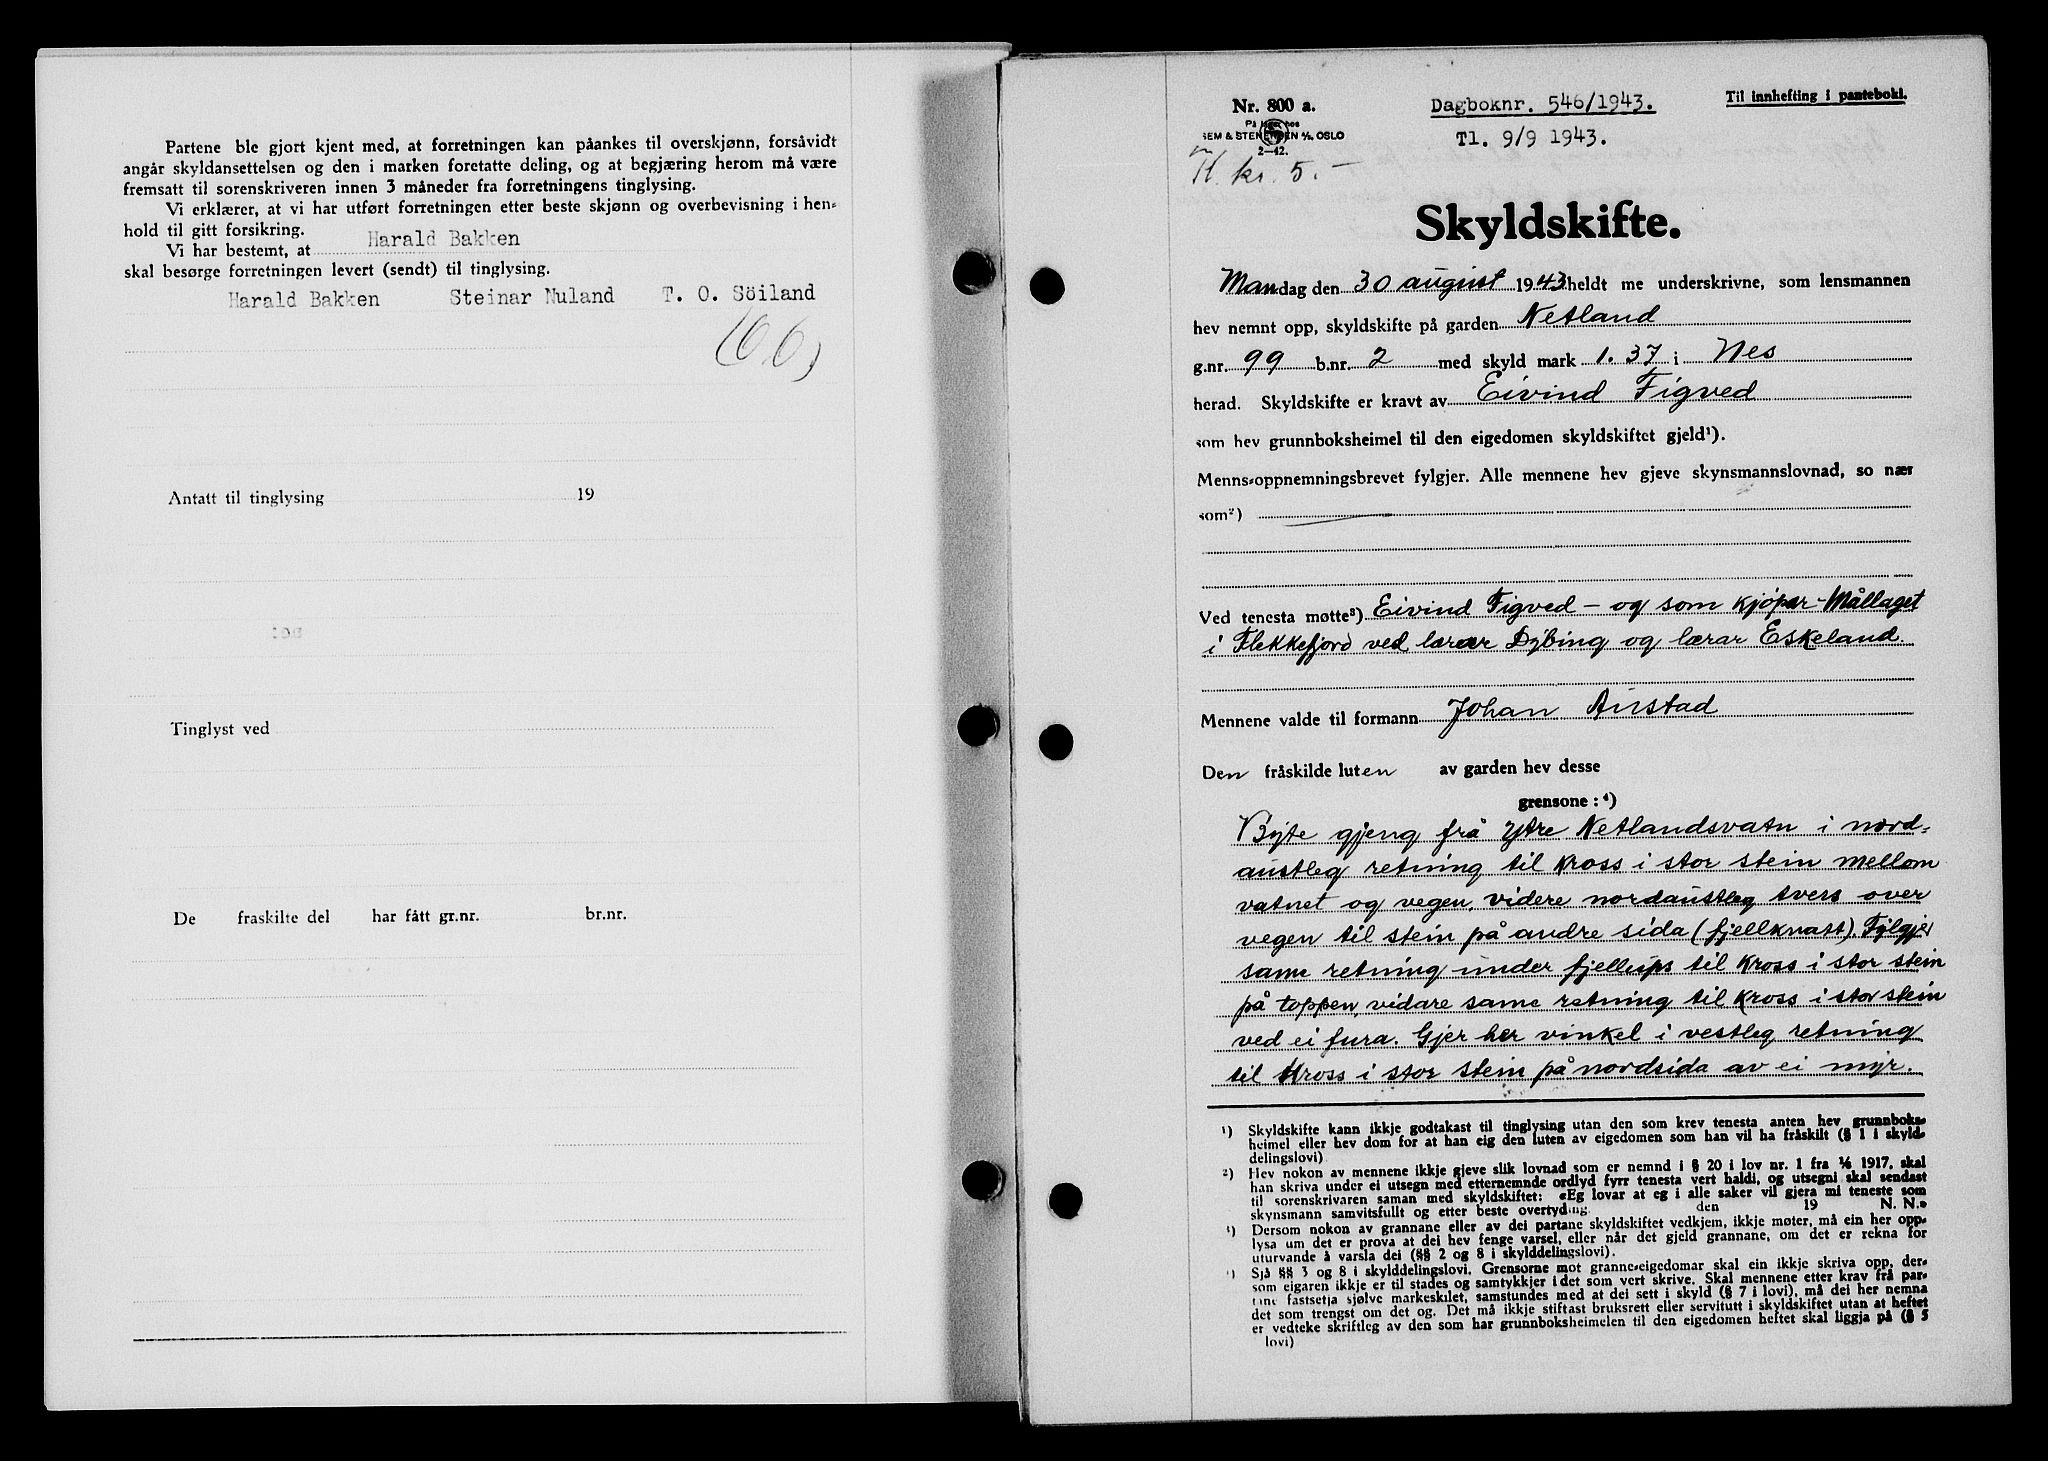 Partene ble gjort kjent med, at forretningen kan påankes til overskjønn, forsåvidt
angår skyldansettelsen og den i marken foretatte deling, og at begjæring herom må være
fremsatt til sorenskriveren innen 3 måneder fra forretningens tinglysing.
Vi erklærer, at vi har utført forretningen etter beste skjønn og overbevisning i hen-
hold til gitt forsikring.
Vi har bestemt, at Harald Bakken
skal besørge forretningen levert (sendt) til tinglysing.
Harald Bakken Steinar Nuland T. O. Söiland
Antatt til tinglysing 19
Tinglyst ved
De fraskilte del har fått gr.nr. br.nr.
Nr. 800 a.
På lager hos
SEM & STENERSEN A/S OSLO
2-42.
Dagboknr. 546/1943.
Tl. 9/9 1943.
Til innhefting i panteboki.
kr. 5.-
Skyldskifte.
Mandag den 30 august 1943 heldt me underskrivne, som lensmannen
hev nemnt opp, skyldskifte på garden Netland
g.nr. 99 b.nr. 2 med skyld mark 1.37 i Nes
herad. Skyldskifte er kravt av Eivind Figved
som hev grunnboksheimel til den eigedomen skyldskiftet gjeld¹).
Menns-oppnemningsbrevet fylgjer. Alle mennene hev gjeve skynsmannslovnad, so nær
som²)
Ved tenesta møtte³) Eivind Figved - og som kjøpar - Mållaget
i Flekkefjord ved lærar Dybing og lærar Eskeland.
Mennene valde til formann Johan Austad
Den fråskilde luten av garden hev desse
grensone: ⁴)
Byte gjeng frå Ytre Netlandsvatn i nord-
austleg retning til kross i stor stein mellom
vatnet og vegen, videre nordaustleg tvers over
vegen til stein på andre sida (fjellknatt). Fylgjer
same retning under fjellups til kross i stor stein
på toppen, vidare same retning til kross i stor stein
ved ei fura. Gjer her vinkel i vestleg retning
til kross i stor stein på nordsida av ei myr.
¹) Skyldskifte kann ikkje godtakast til tinglysing utan den som krev tenesta anten hev grunnboks-
heimel eller hev dom for at han eig den luten av eigedomen som han vil ha fråskilt (§ 1 i skyld-
delingslovi)
²) Hev nokon av mennene ikkje gjeve slik lovnad som er nemnd i § 20 i lov nr. 1 fra 1/6 1917, skal
han skriva under ei utsegn med etternemnde ordlyd fyrr tenesta vert haldi, og utsegni skal sendast
til sorenskrivaren saman med skyldskiftet: «Eg lovar at eg i alle saker vil gjera mi teneste som
skynsmann samvitsfullt og etter beste overtyding. den 19 N. N.»
³) Dersom nokon av grannane eller av dei partane skyldskiftet vedkjem, ikkje møter, må ein her opp-
lysa um det er prova at dei hev fenge varsel, eller når det gjeld grannane, om det er rekna for
uturvande å varsla dei (§§ 2 og 8 i skylddelingslovi).
⁴) Sjå §§ 3 og 8 i skylddelingslovi. Grensorne mot granne-eigedomar skal ein ikkje skriva opp, der-
som eigaren ikkje er til stades og samtykkjer i det som vert skrive. Skal mennene etter krav frå par-
tane fastsetja sjølve markeskilet, samstundes med at dei sett i skyld (§ 7 i lovi), må dei her nemna
det som trengst om det og. Det må ikkje stiftast bruksrett eller servitutt i skyldskiftet utan at heftet
er vedteke skriftleg av den som har grunnboksheimelen til den eigedomen heftet skal liggja på (§ 5
lovi)